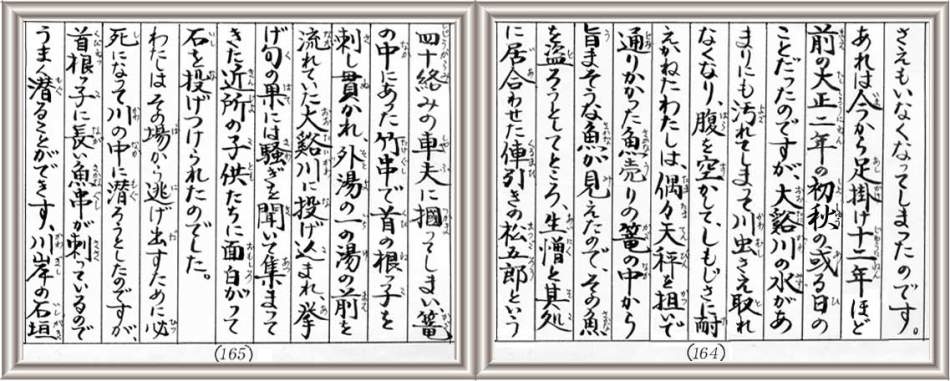 さえもいなくなってしまったのです。
あれは今から足掛け十二年ほど
前の大正二年の初秋の或る日の
ことだったのですが、大谿川の水があ
まりにも汚れてしまって川虫さえ取れ
なくなり、腹を空かして、しもじさに耐
えかねたわたしは、偶々天秤を担いで
通りかかった魚売りの篭の中から
旨まそうな魚が見えたので、その魚
を盗ろうとしてところ、生憎と其処
に居合わせた俥引きの松五郎という
(164)
四十絡みの車夫に掴ってしまい篭
の中にあった竹串で首の根っ子を
刺し貫かれ、外湯の一の湯の前を
流れていた大谿川に投げ込まれ、挙
げ句の果には騒ぎを聞いて集まって
きた近所の子供たちに面白がって
石を投げつけられたのでした。
わたしはその場から逃げ出すために必
死になって川の中に潜ろうとしたのですが、
首根っ子に長い魚串が刺っているので
うまく潜ることができず、川岸の石垣
(165)